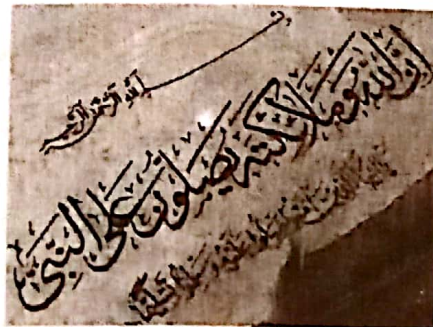 بسم الله الرحمن الرحيم
ان الله وملائكته يصلون على النبى
يا ايها الذين امنوا صلوا عليه وسلموا تسليما